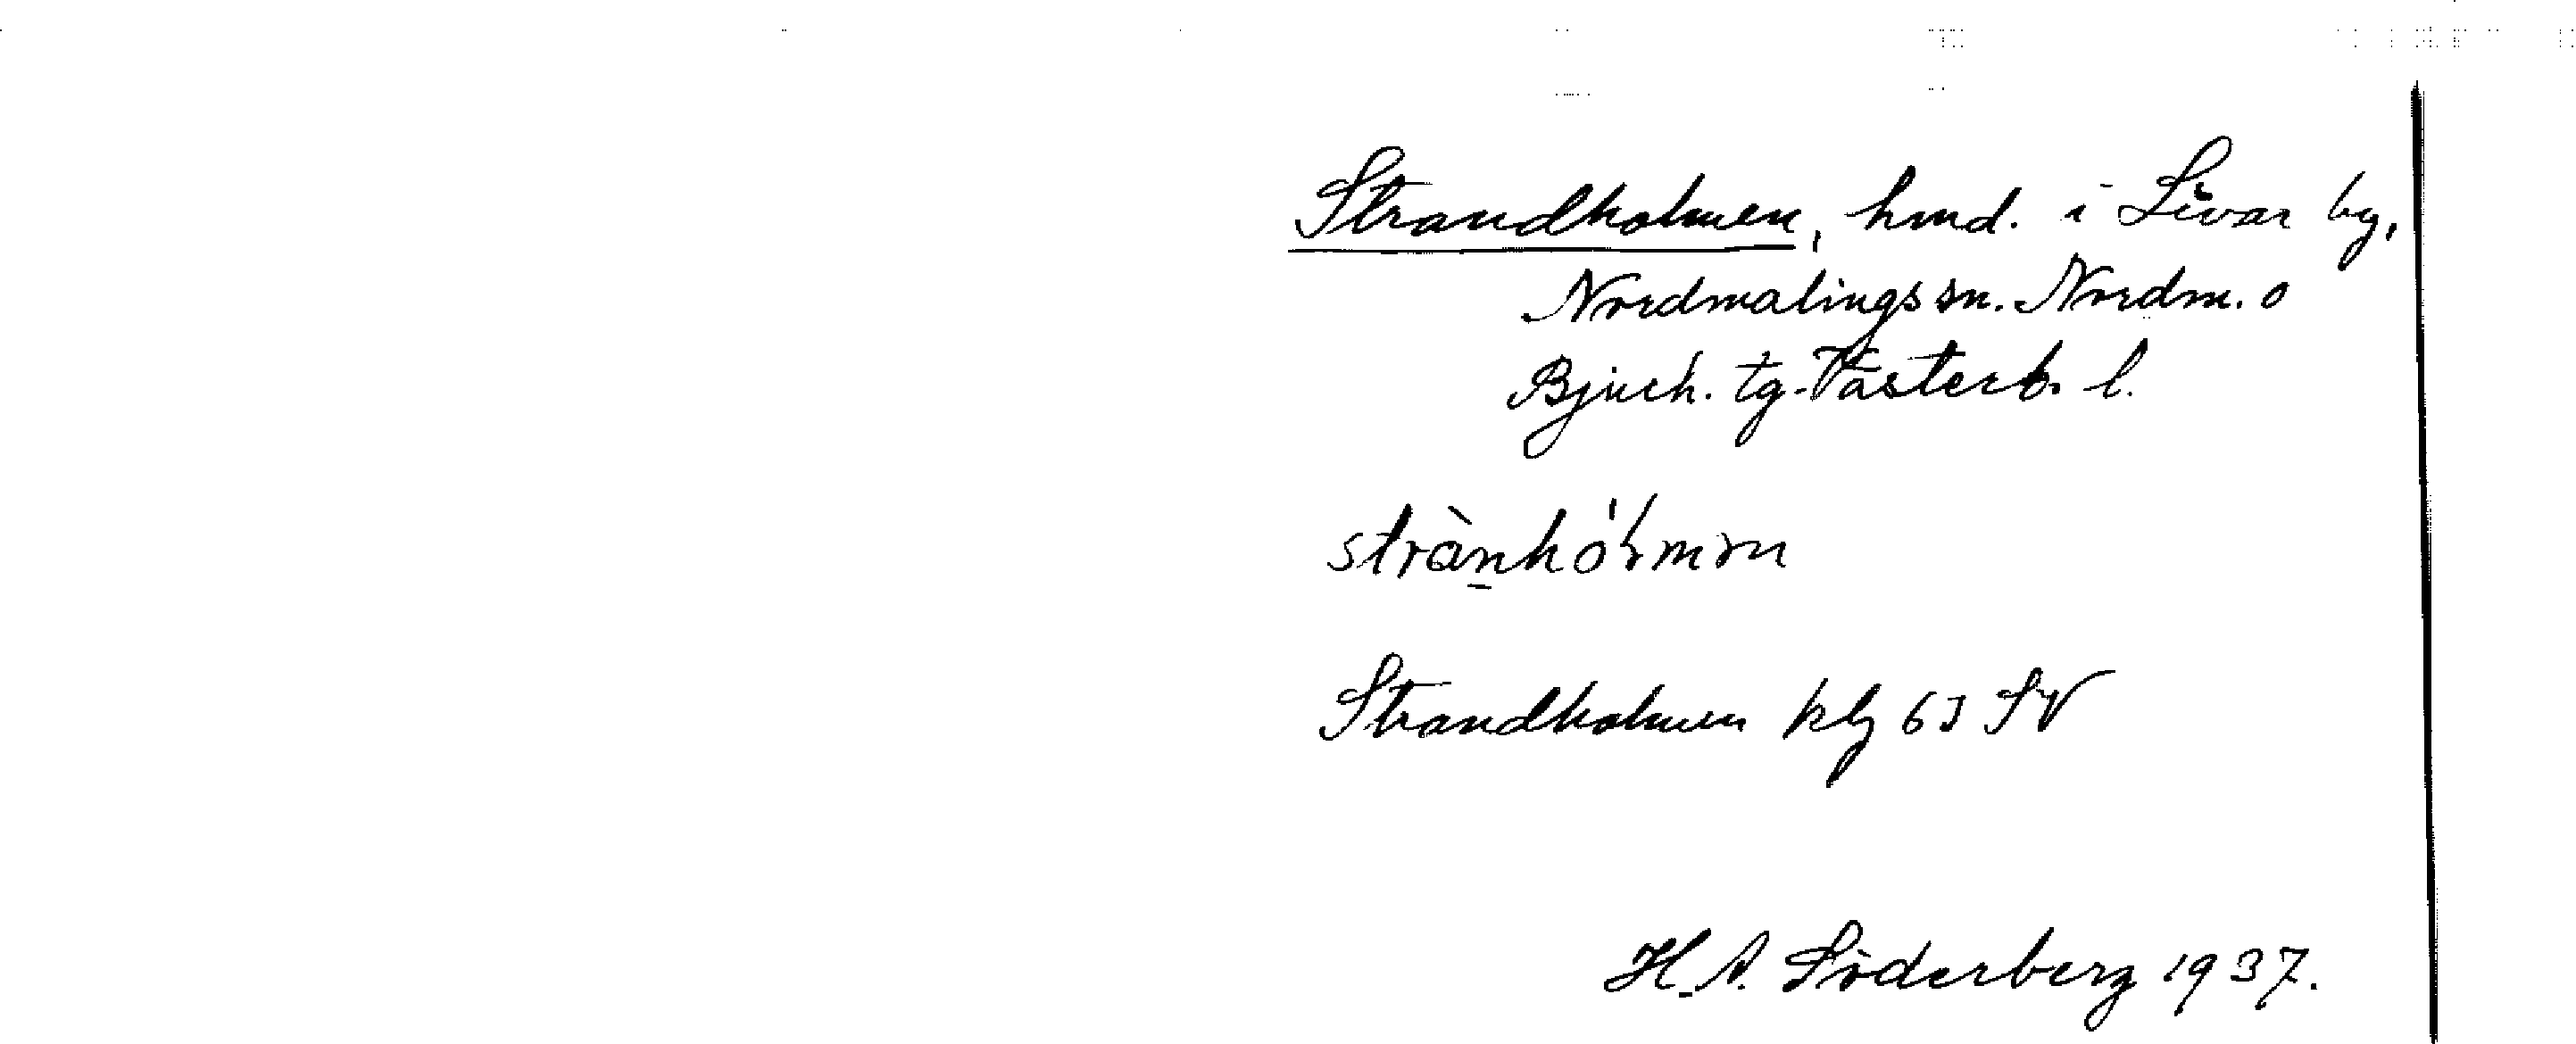 Strandholmen, hmd. i Levar by,
Nordmalings sn. Nordm. o
Bjurh. tg. Västerb. l.
strànhó
Strandholmen klg 63 SV
H. A. Söderberg 1937.